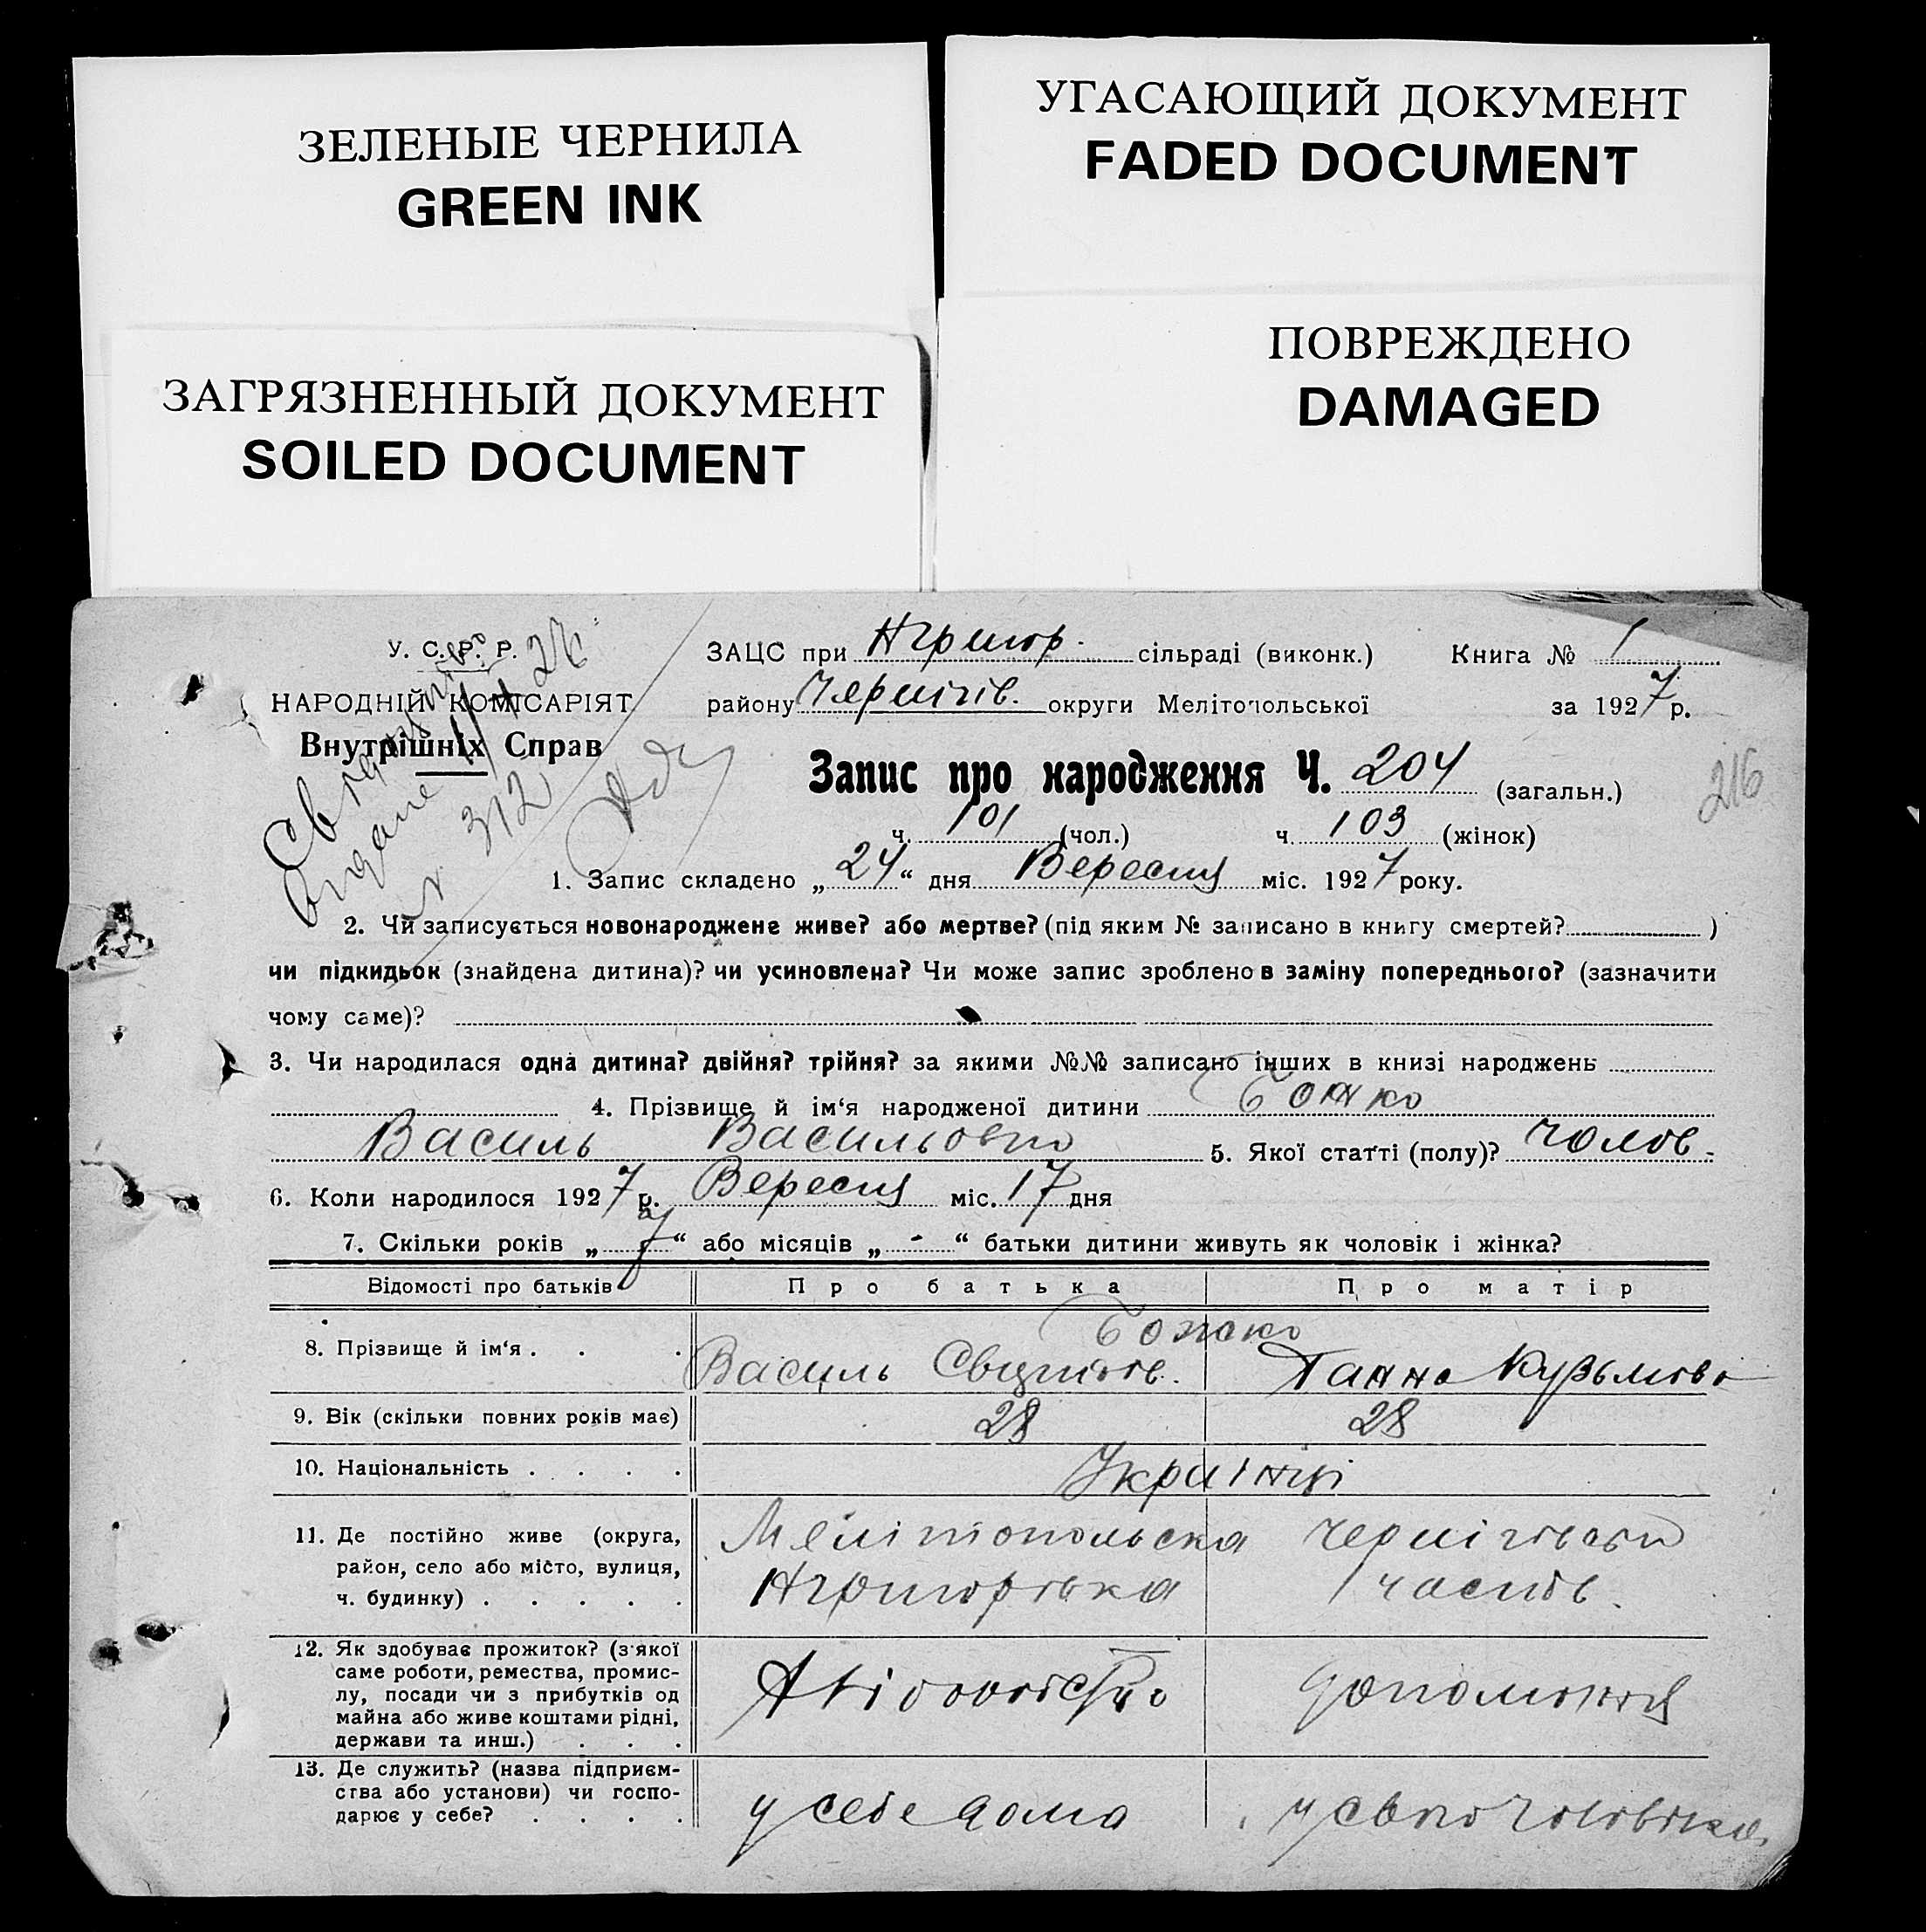 ЗЕЛЕНЫЕ ЧЕРНИЛА
GREEN INK
УГАСАЮЩИЙ ДОКУМЕНТ
FADED DOCUMENT
ЗАГРЯЗНЕННЫЙ ДОКУМЕНТ
SOILED DOCUMENT
ПОВРЕЖДЕНО
DAMAGED
У. С. Р. Р.
НАРОДНІЙ КОМІСАРІЯТ
Внутрішніх Справ
312
ЗАЦС при Нгригор. сільраді (виконк.) Книга № 1
району Чернігів. округи Мелітопольської за 1927 р.
Запис про народження Ч. 204 (загальн.)
216
ч. 101 (чол.) ч. 103 (жінок)
1. Запис складено „ 24 “ дня Вересня міс. 1927 року.
2. Чи записується новонароджене живе? або мертве? (під яким № записано в книгу смертей? )
чи підкидьок (знайдена дитина)? чи усиновлена? Чи може запис зроблено в заміну попереднього? (зазначити
чому саме)?
3. Чи народилася одна дитина? двійня? трійня? за якими №№ записано інших в книзі народжень
4. Прізвище й ім‘я народженої дитини Божко
Василь Васильович 5. Якої статті (полу)? чолов.
6. Коли народилося 1927 р. Вересня міс. 17 дня
7. Скільки років „ 7 “ або місяців „ - “ батьки дитини живуть як чоловік і жінка?
Відомості про батьків Про батька Про матір
8. Прізвище й ім‘я . . . Божко
Василь Ганна Кузьмова
9. Вік (скільки повних років має) 28 28
10. Національність . . . . Українці
11. Де постійно живе (округа,
район, село або місто, вулиця,
ч. будинку) . . . . .
Мелітопольска Чернігівськ
Нгригорівка
12. Як здобуває прожиток? (з якої
саме роботи, ремества, промис-
лу, посади чи з прибутків од
майна або живе коштами рідні,
держави та инш.) . . .
13. Де служить? (назва підприєм-
ства або установи) чи госпо-
дарює у себе? . . . .
у себе дома у свого чоловіка